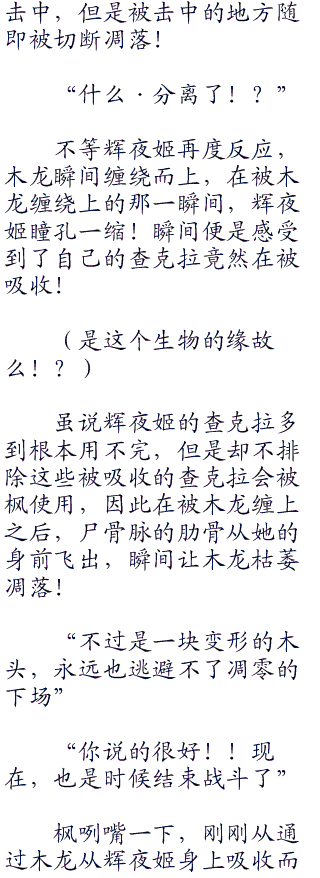 击中，但是被击中的地方随
即被切断凋落！
“什么·分离了！？”
不等辉夜姬再度反应，
木龙瞬间缠绕而上，在被木
龙缠绕上的那一瞬间，辉夜
姬瞳孔一缩！瞬间便是感受
到了自己的查克拉竟然在被
吸收！
（是这个生物的缘故
么！？）
虽说辉夜姬的查克拉多
到根本用不完，但是却不排
除这些被吸收的查克拉会被
枫使用，因此在被木龙缠上
之后，尸骨脉的肋骨从她的
身前飞出，瞬间让木龙枯萎
凋落！
“不过是一块变形的木
头，永远也逃避不了凋零的
下场”
“你说的很好！！现
在，也是时候结束战斗了”
枫咧嘴一下，刚刚从通
过木龙从辉夜姬身上吸收而